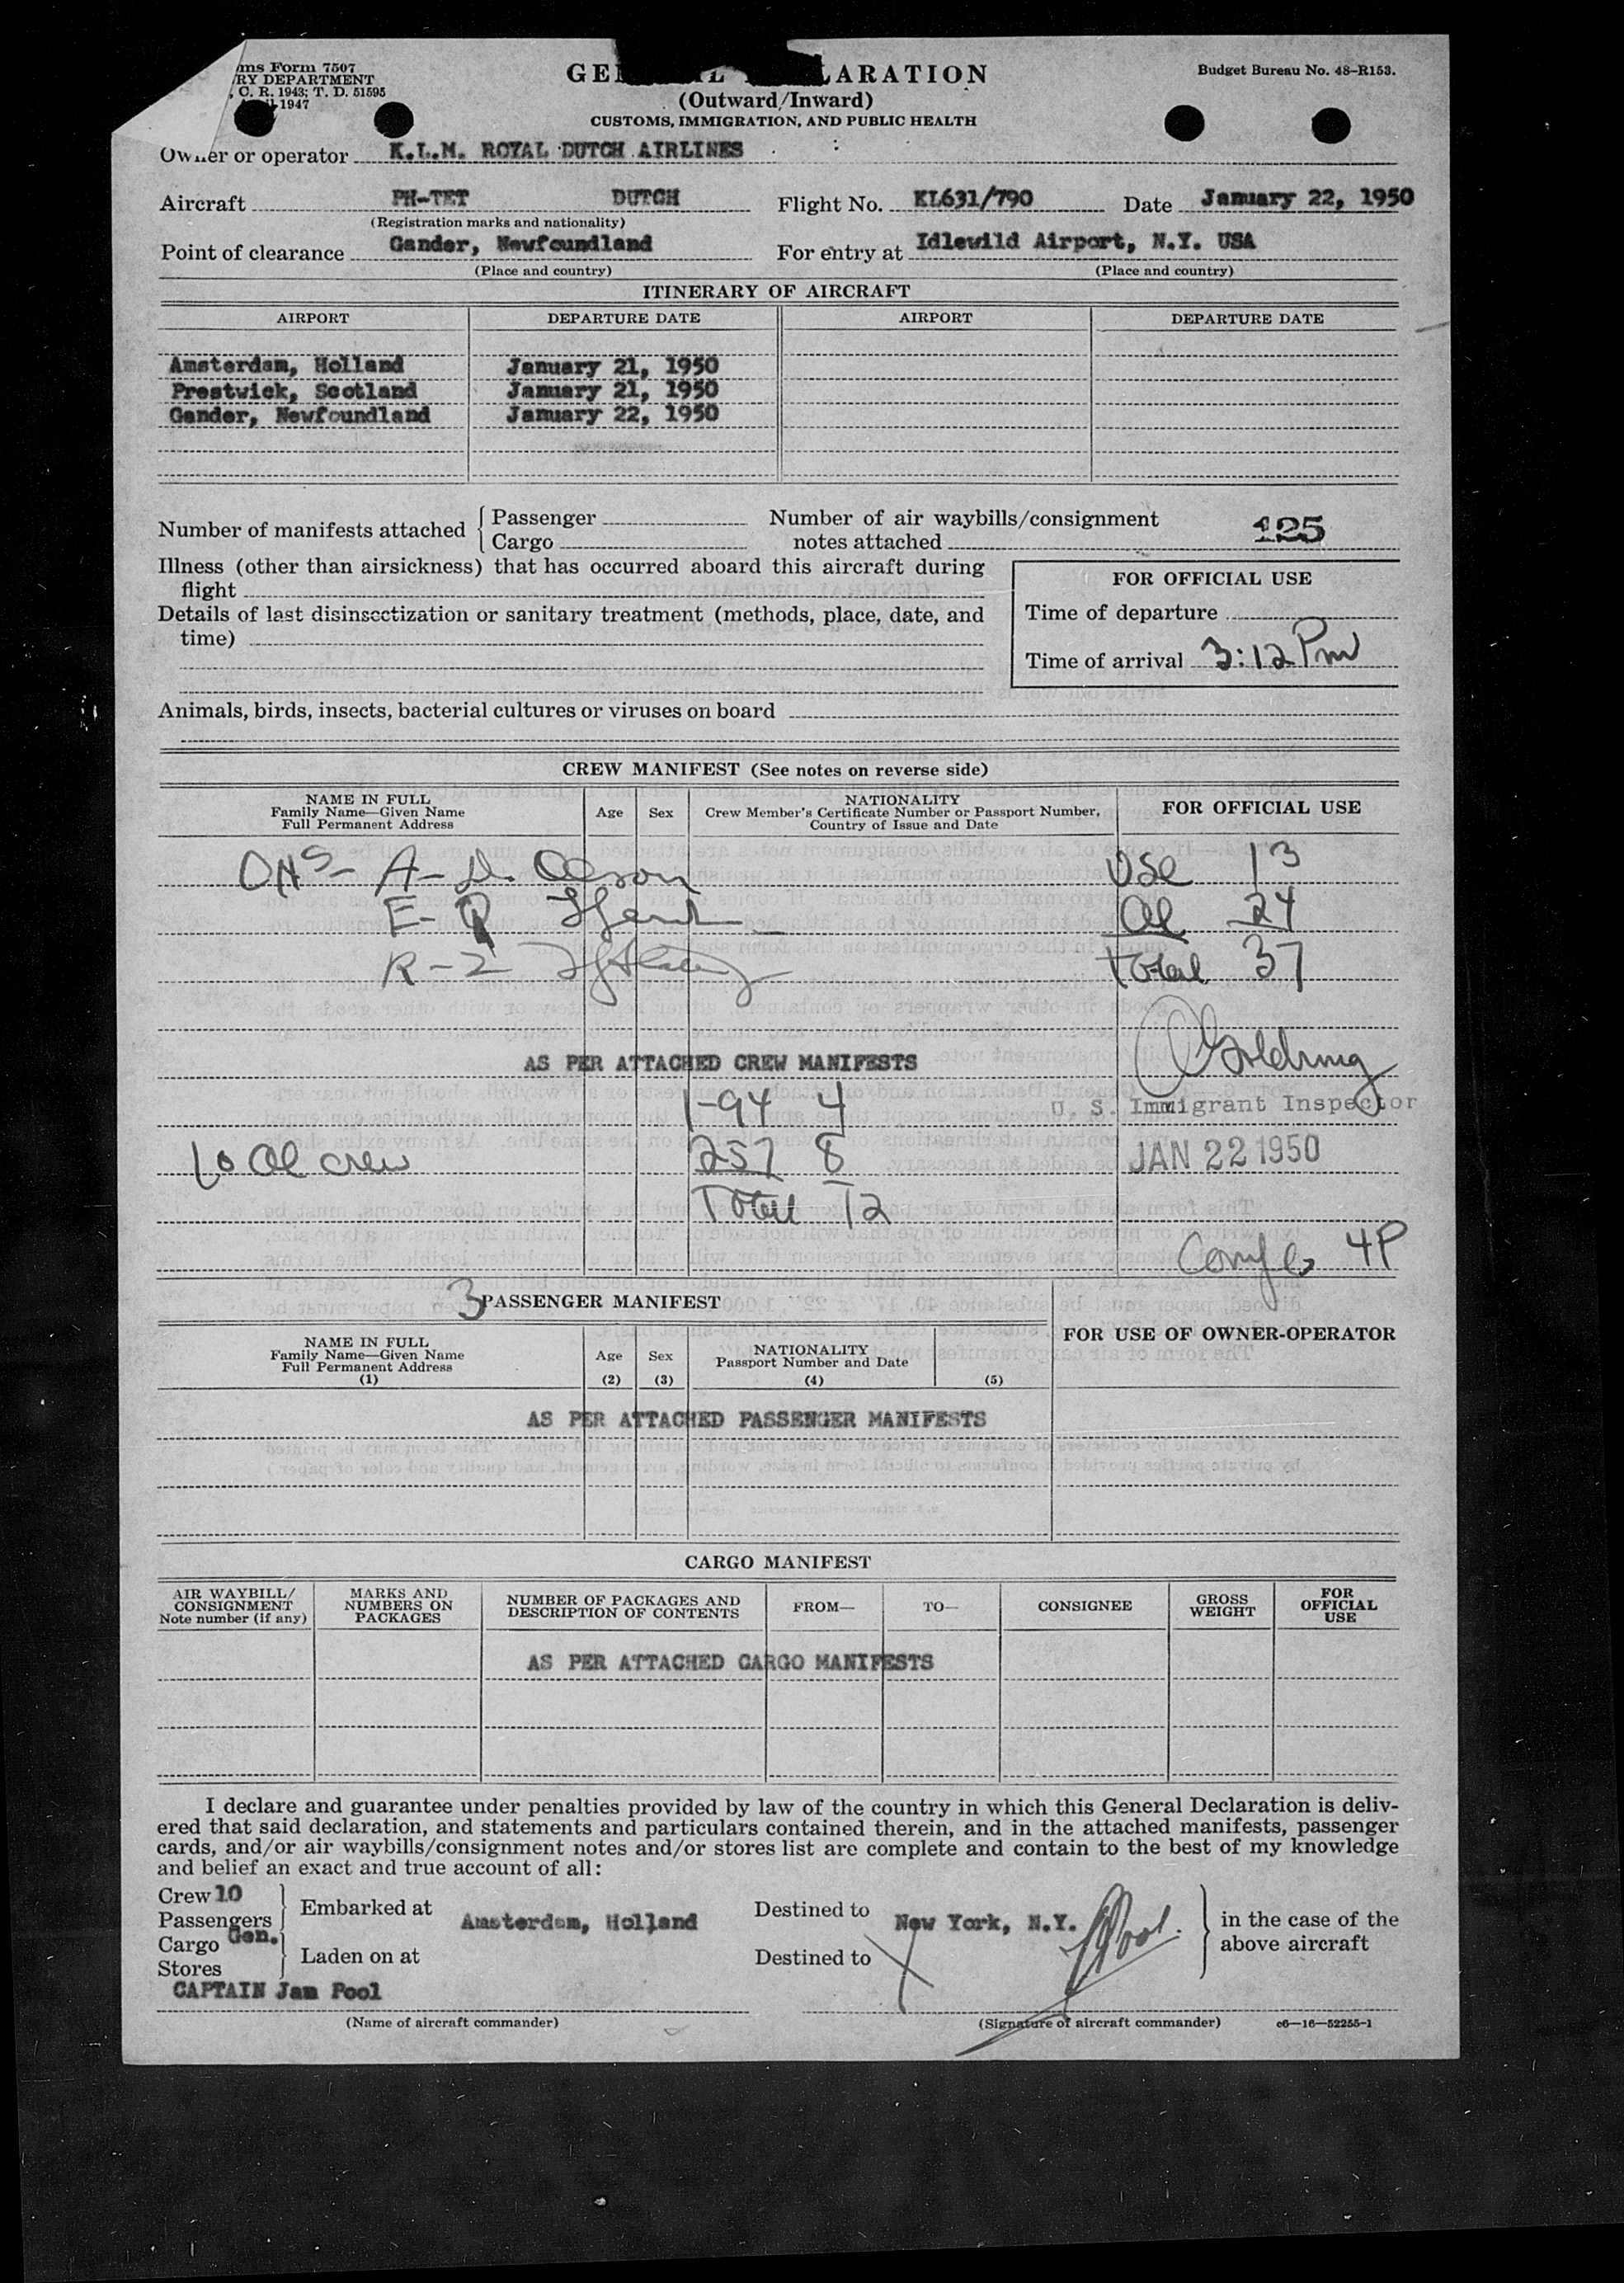 ms Form 7507
RY DEPARTMENT
, C. R. 1943; T. D. 51595
1947
GE L LARATION
(Outward/Inward)
CUSTOMS, IMMIGRATION, AND PUBLIC HEALTH
Budget Bureau No. 48-R153.
Owner or operator K.L.M. ROYAL DUTCH AIRLINES
Aircraft PH-TET DUTCH Flight No. KL631/790 Date January 22, 1950
(Registration marks and nationality)
Point of clearance Gander, Newfoundland For entry at Idlewild Airport, N.Y. USA
(Place and country) (Place and country)
ITINERARY OF AIRCRAFT
AIRPORT DEPARTURE DATE AIRPORT DEPARTURE DATE
Amsterdam, Holland January 21, 1950
Prestwick, Scotland January 21, 1950
Gander, Newfoundland January 22, 1950
Number of manifests attached { Passenger
Cargo
Number of air waybills/consignment
notes attached 125
Illness (other than airsickness) that has occurred aboard this aircraft during
flight
Details of last disinsectization or sanitary treatment (methods, place, date, and
time)
FOR OFFICIAL USE
Time of departure
Time of arrival 3:12 Pm
Animals, birds, insects, bacterial cultures or viruses on board
CREW MANIFEST (See notes on reverse side)
NAME IN FULL
Family Name—Given Name
Full Permanent Address
Age
Sex
NATIONALITY
Crew Member's Certificate Number or Passport Number,
Country of Issue and Date
FOR OFFICIAL USE
A- D. Olson USC 13
E- Al 24
R-2 Total 37
Goldring
AS PER ATTACHED CREW MANIFESTS
I-94 4
U. S. Immigrant Inspector
10 Al crew 257 8 JAN 22 1950
Total 12
4P
3 PASSENGER MANIFEST
NAME IN FULL
Family Name—Given Name
Full Permanent Address
(1)
Age
(2)
Sex
(3)
NATIONALITY
Passport Number and Date
(4)
(5)
FOR USE OF OWNER-OPERATOR
AS PER ATTACHED PASSENGER MANIFESTS
CARGO MANIFEST
AIR WAYBILL/
CONSIGNMENT
Note number (if any)
MARKS AND
NUMBERS ON
PACKAGES
NUMBER OF PACKAGES AND
DESCRIPTION OF CONTENTS
FROM—
TO—
CONSIGNEE
GROSS
WEIGHT
FOR
OFFICIAL
USE
AS PER ATTACHED CARGO MANIFESTS
I declare and guarantee under penalties provided by law of the country in which this General Declaration is deliv-
ered that said declaration, and statements and particulars contained therein, and in the attached manifests, passenger
cards, and/or air waybills/consignment notes and/or stores list are complete and contain to the best of my knowledge
and belief an exact and true account of all:
Crew 10
Passengers
Cargo Gen.
Stores
Embarked at Amsterdam, Holland
Laden on at
Destined to New York, N.Y.
Destined to
JPool.
in the case of the
above aircraft
CAPTAIN Jan Pool
(Name of aircraft commander) (Signature of aircraft commander) c6—16—52255-1